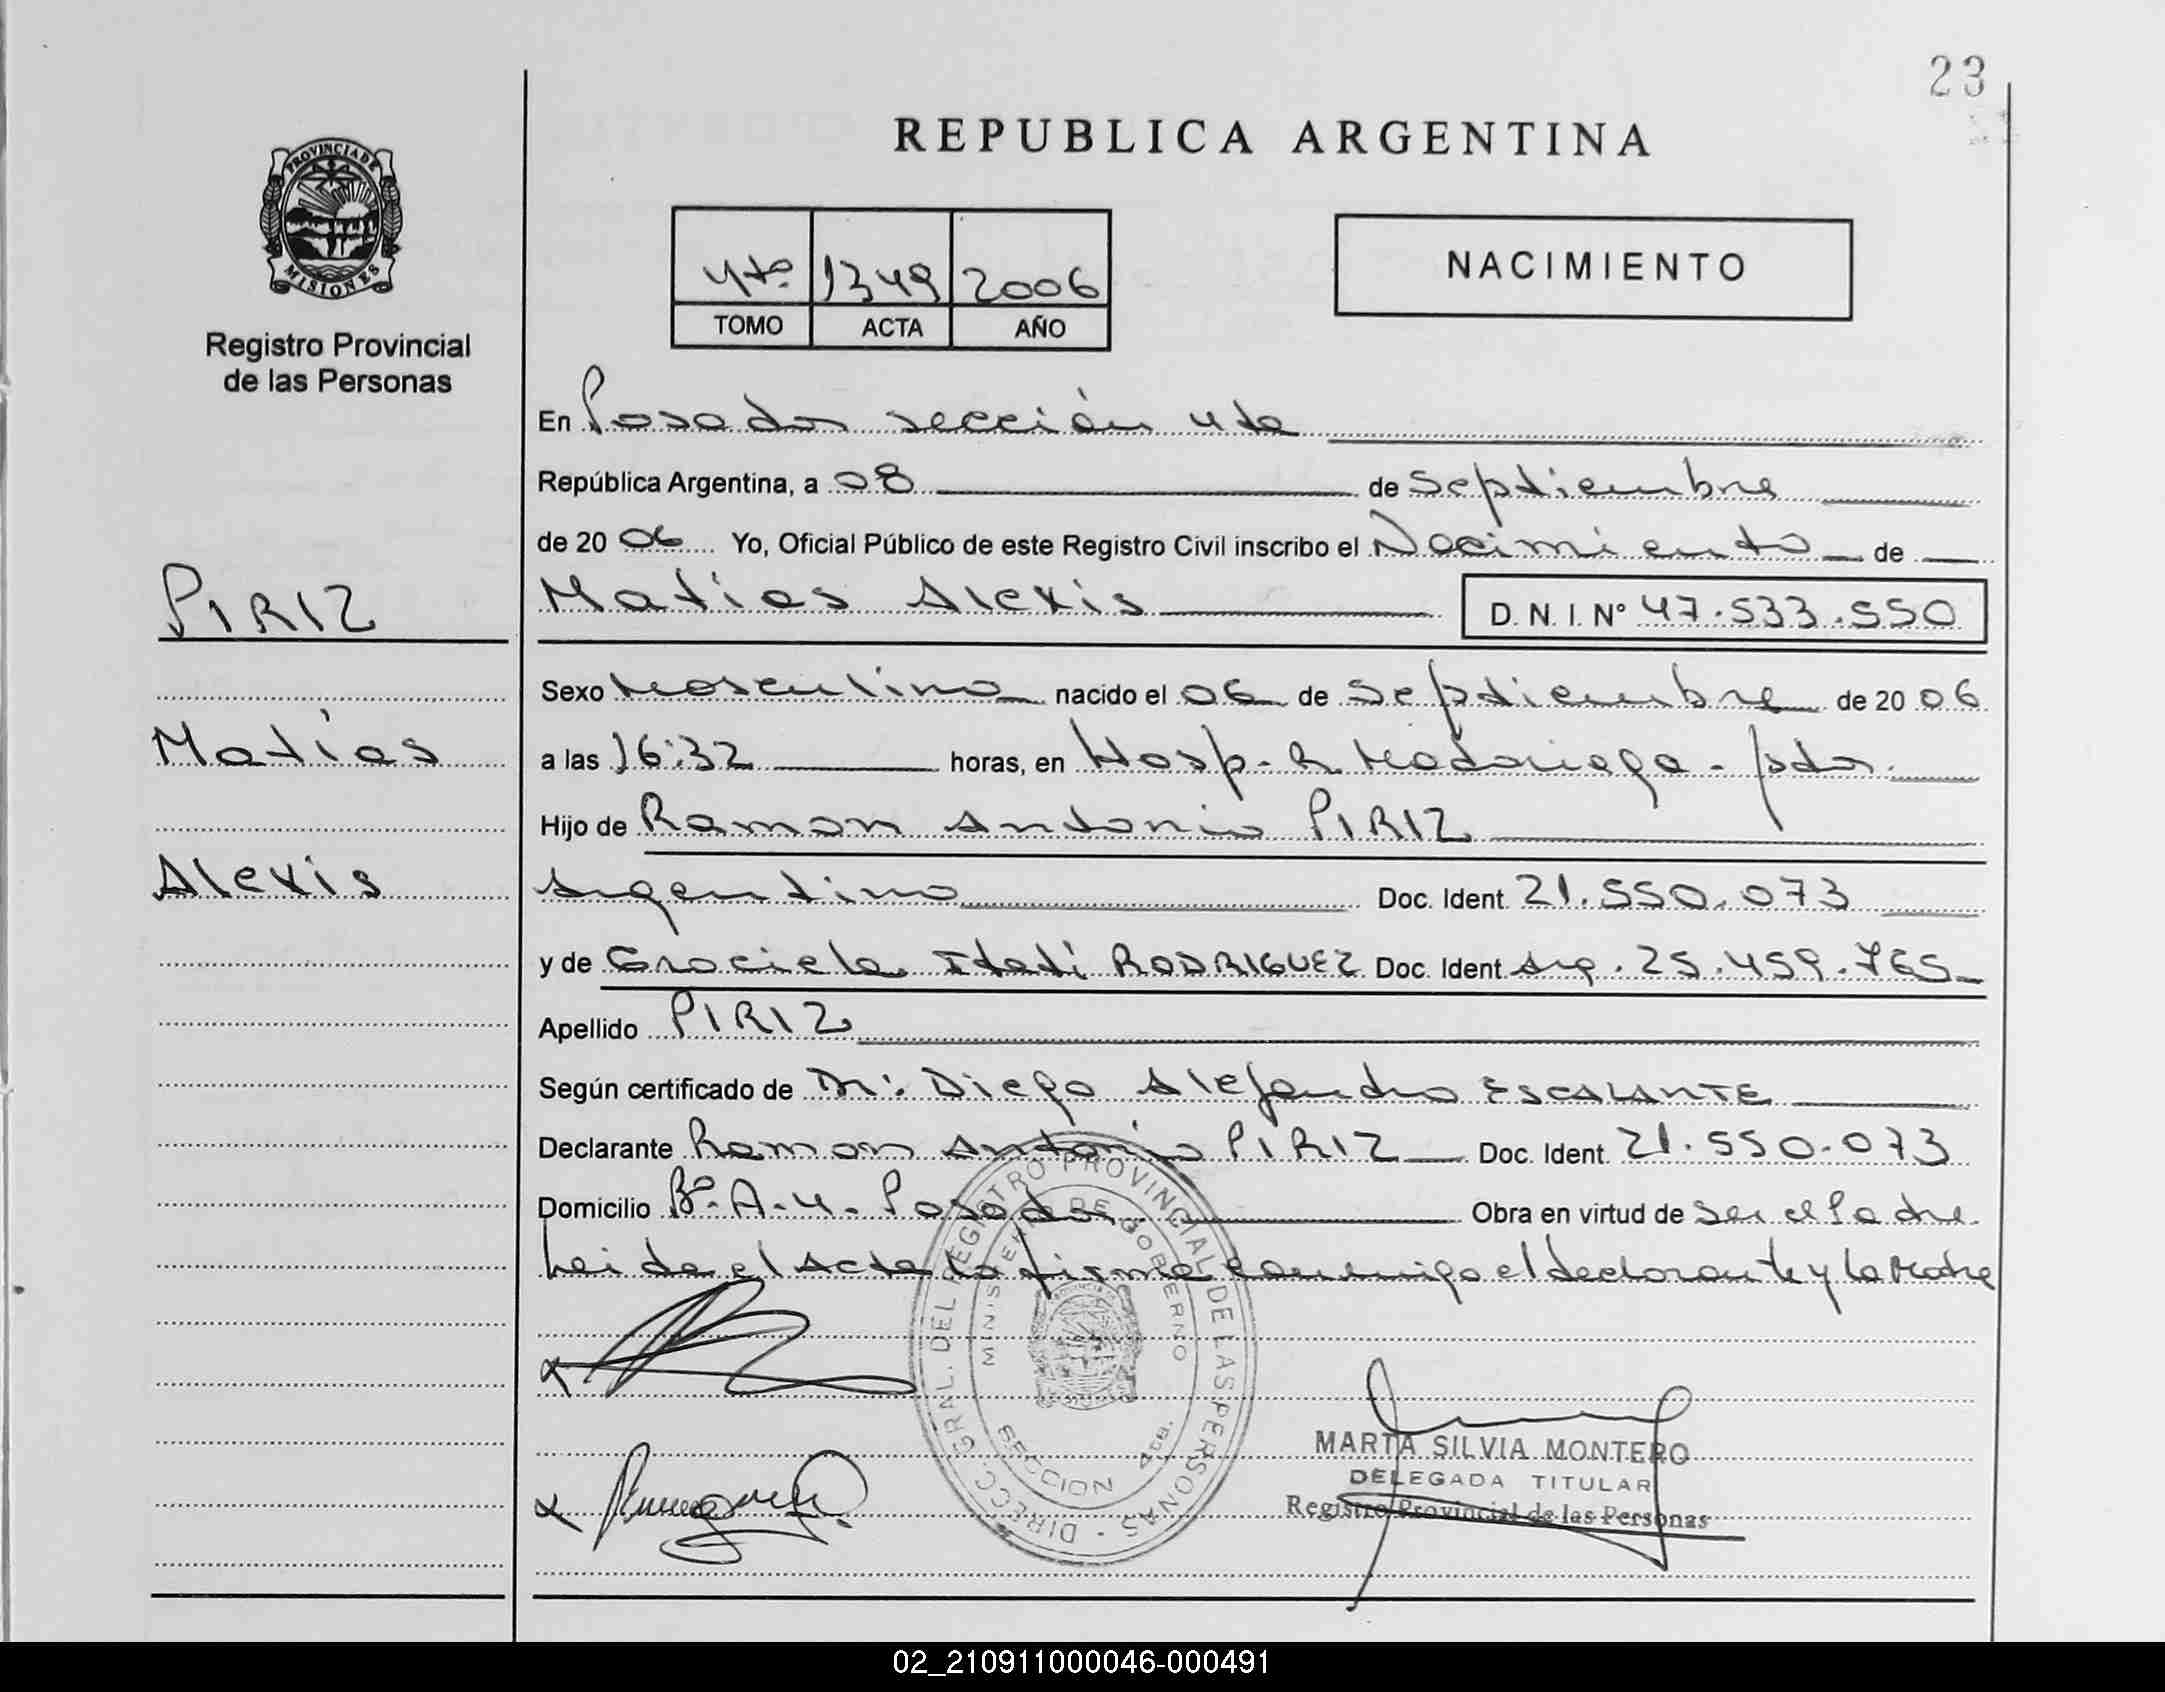 23
REPUBLICA ARGENTINA
PROVINCIA DE
MISIONES
Registro Provincial
de las Personas
4to 1349 2006
TOMO ACTA AÑO
NACIMIENTO
En Posadas sección 4ta
República Argentina, a 08 de Septiembre
de 2006 Yo, Oficial Público de este Registro Civil inscribo el Nacimiento de
PIRIZ
Matías Alexis D. N. I. Nº 47.533.550
Sexo Masculino nacido el 06 de Septiembre de 2006
Matías
a las 16:32 horas, en Hosp. R Madariaga - pdas.
Hijo de Ramon Antonio PIRIZ
Alexis
Argentino Doc. Ident. 21.550.073
y de Graciela Itatí RODRIGUEZ Doc. Ident Arg. 25.459.765
Apellido PIRIZ
Según certificado de Dr: Diego Alejandro ESCALANTE
Declarante Ramon Antonio PIRIZ Doc. Ident. 21.550.073
Domicilio Bº. A-4. Posadas. Obra en virtud de Ser el Padre
Leida el Acta la firma conmigo el declarante y la Madre
DIRECC. GRAL. DEL REGISTRO PROVINCIAL DE LAS PERSONAS
MINISTERIO DE GOBIERNO
SECCION 4ta.
MARTA SILVIA MONTERO
DELEGADA TITULAR
Registro Provincial de las Personas
02_210911000046-000491